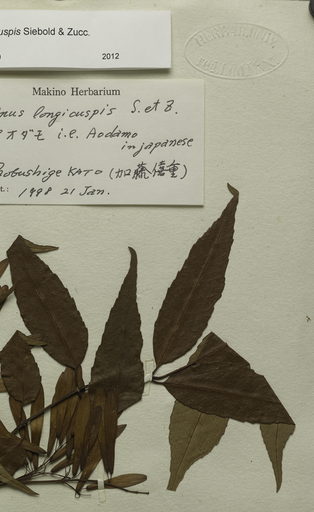 uspis Siebold & Zucc.
2012
Makino Herbarium
inus longicuspis S. et B.
オダモ i.e. Aodamo
in japanese
Nobushige KATO (加藤僖重)
t: 1998 21 Jan.